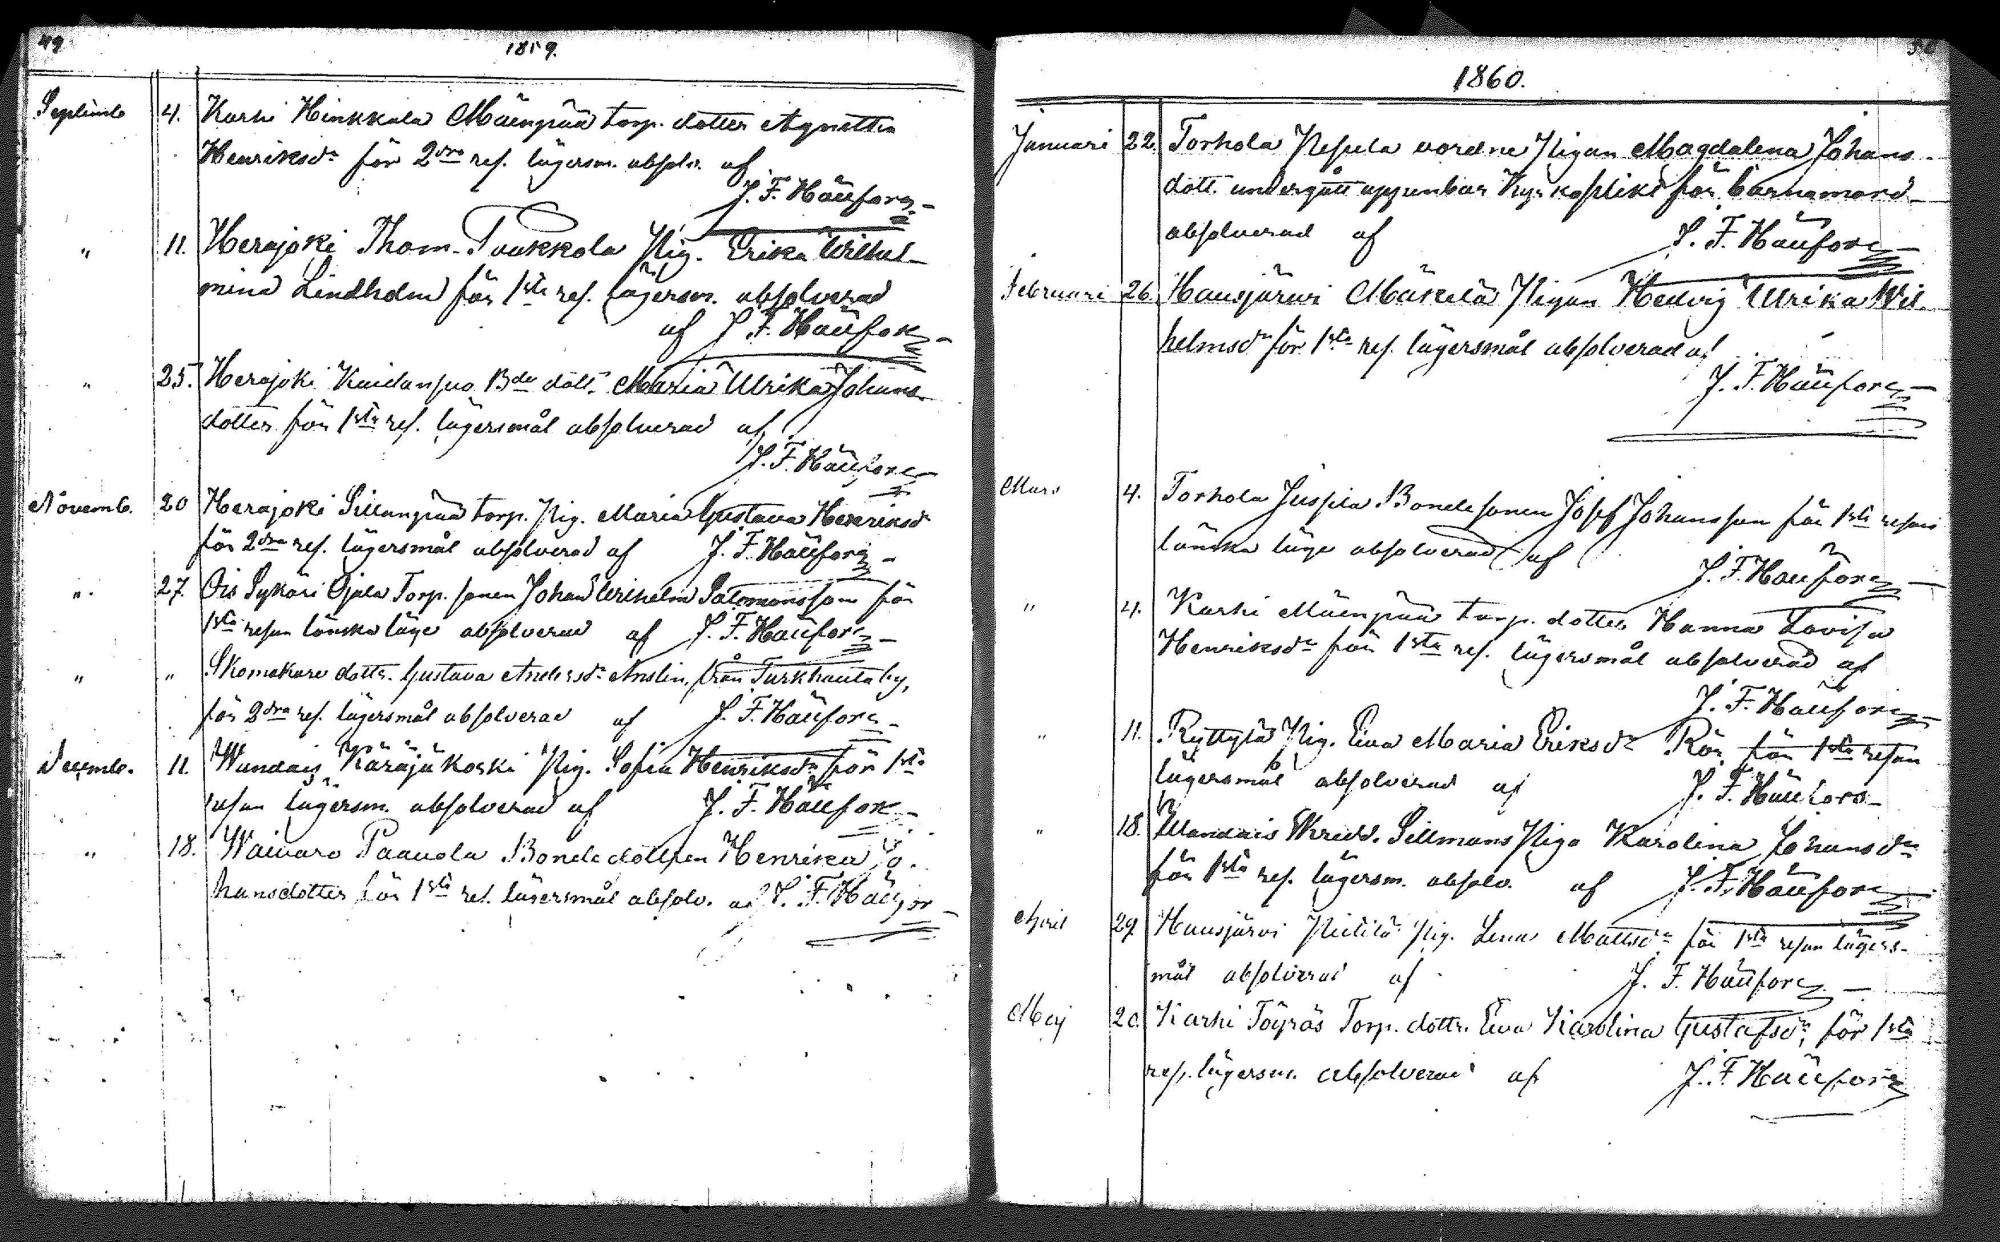 49
1859.
Septemb 4. Karhi Hinkkala Mäenpää torp. dotter Agnetta
Henriksdr för 2dra res. lägersm. absolv. af
J. F. Häufors
" 11. Herajoki Thom. Paakkola Pig. Erika Wilhel-
mina Lindholm för 1sta res. lägersm. absolverad
af J. F. Häufors
" 25. Herajoki Bde dott. Maria Ulrika Johans-
dotter för 1sta res. lägersmål absolverad af
J. F. Häufors
Novemb. 20 Herajoki Sillanpää torp. Pig. Maria Gustava Henriksdr
för 2dra res. lägersmål absolverad af J. F. Häufors
" 27. Ois Sykäri Ojala Torp. sonen Johan Wilhelm Salomonsson för
1sta resan lönska läge absolverad af J. F. Häufors
" " Skomakare dottr. Gustava Andersdr Anslin, från Turkhauta by,
för 2dra res. lägersmål absolverad af J. F. Häufors
Decemb. 11. Wandais Käräjäkoski Pig. Sofia Henriksdr för 1sta
resan lägersm. absolverad af J. F. Häufors
" 18. Waivaro Paavola Bonde dottren Henrika Jo-
hansdotter för 1sta res. lägersmål absolv. af J. F. Häufors
50
1860.
Januari 22. Torhola Pepula vordne Pigan Magdalena Johans-
dott. undergått uppenbar Kyrkoplikt för barnamord
absolverad af J. F. Häufors
Februari 26. Hausjärwi Mäkelä Pigan Hedvig Ulrika Wil-
helmsdr för 1sta res. lägersmål absolverad af
J. F. Häufors
Mars 4. Torhola Jussila Bondesonen Josef Johansson för 1sta resan
lönska läge absolverad af
J. F. Häufors
" 4. Karhi Mäenpää torp. dotter Hanna Lovisa
Henriksdr för 1sta res. lägersmål absolverad af
J. F. Häufors
" 11. Ryttylä Pig. Eva Maria Eriksdr Rör för 1sta resan
lägersmål absolverad af J. F. Häufors
" 18. Wandais Sillmans Piga Karolina Johansdr
för 1sta res. lägersm. absolv. af J. F. Häufors
April 29. Hausjärvi Pietilä Pig. Lena Mattsdr för 1sta resan lägers-
mål absolverad af J. F. Häufors
Maj 20. Karhi Töyräs Torp. dottr. Eva Karolina Gustafsdr, för 1sta
res. lägersm. absolverad af J. F. Häufors